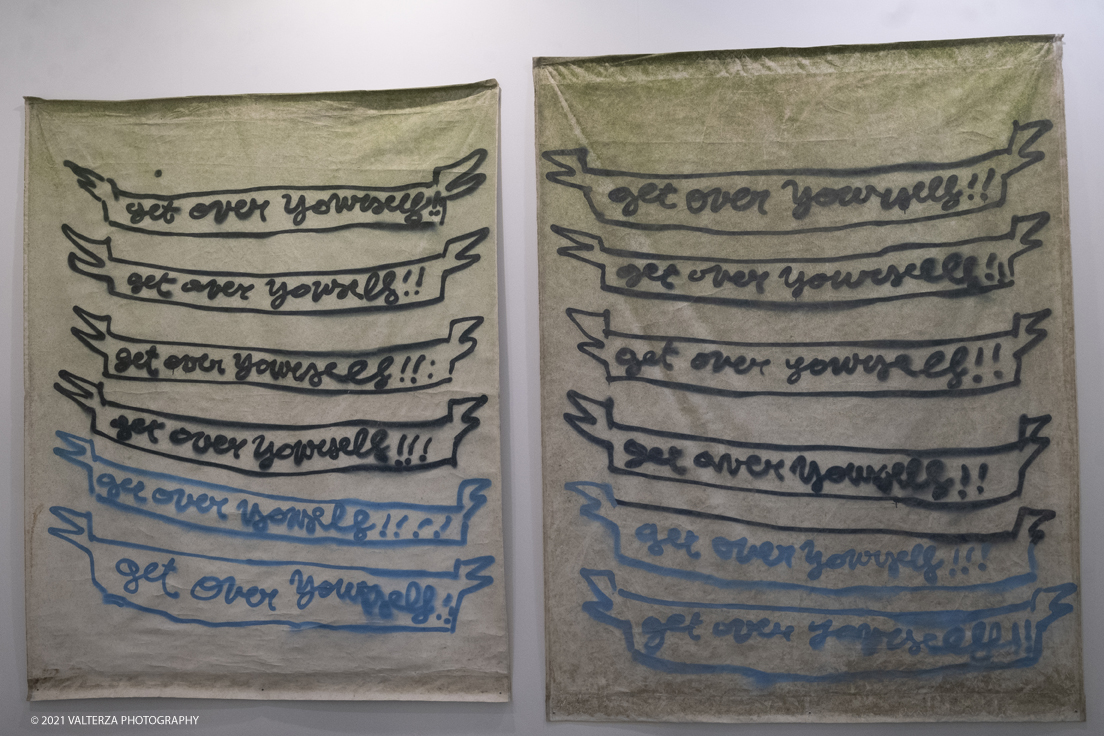 get over yourself!!
get over yourself!!
get over yourself!!!
get over yourself!!!
get over yourself!!!!
get over yourself!!
get over yourself!!
get over yourself!!
get over yourself!!
get over yourself!!
get over yourself!!!
get over yourself!!
© 2021 VALTERZA PHOTOGRAPHY